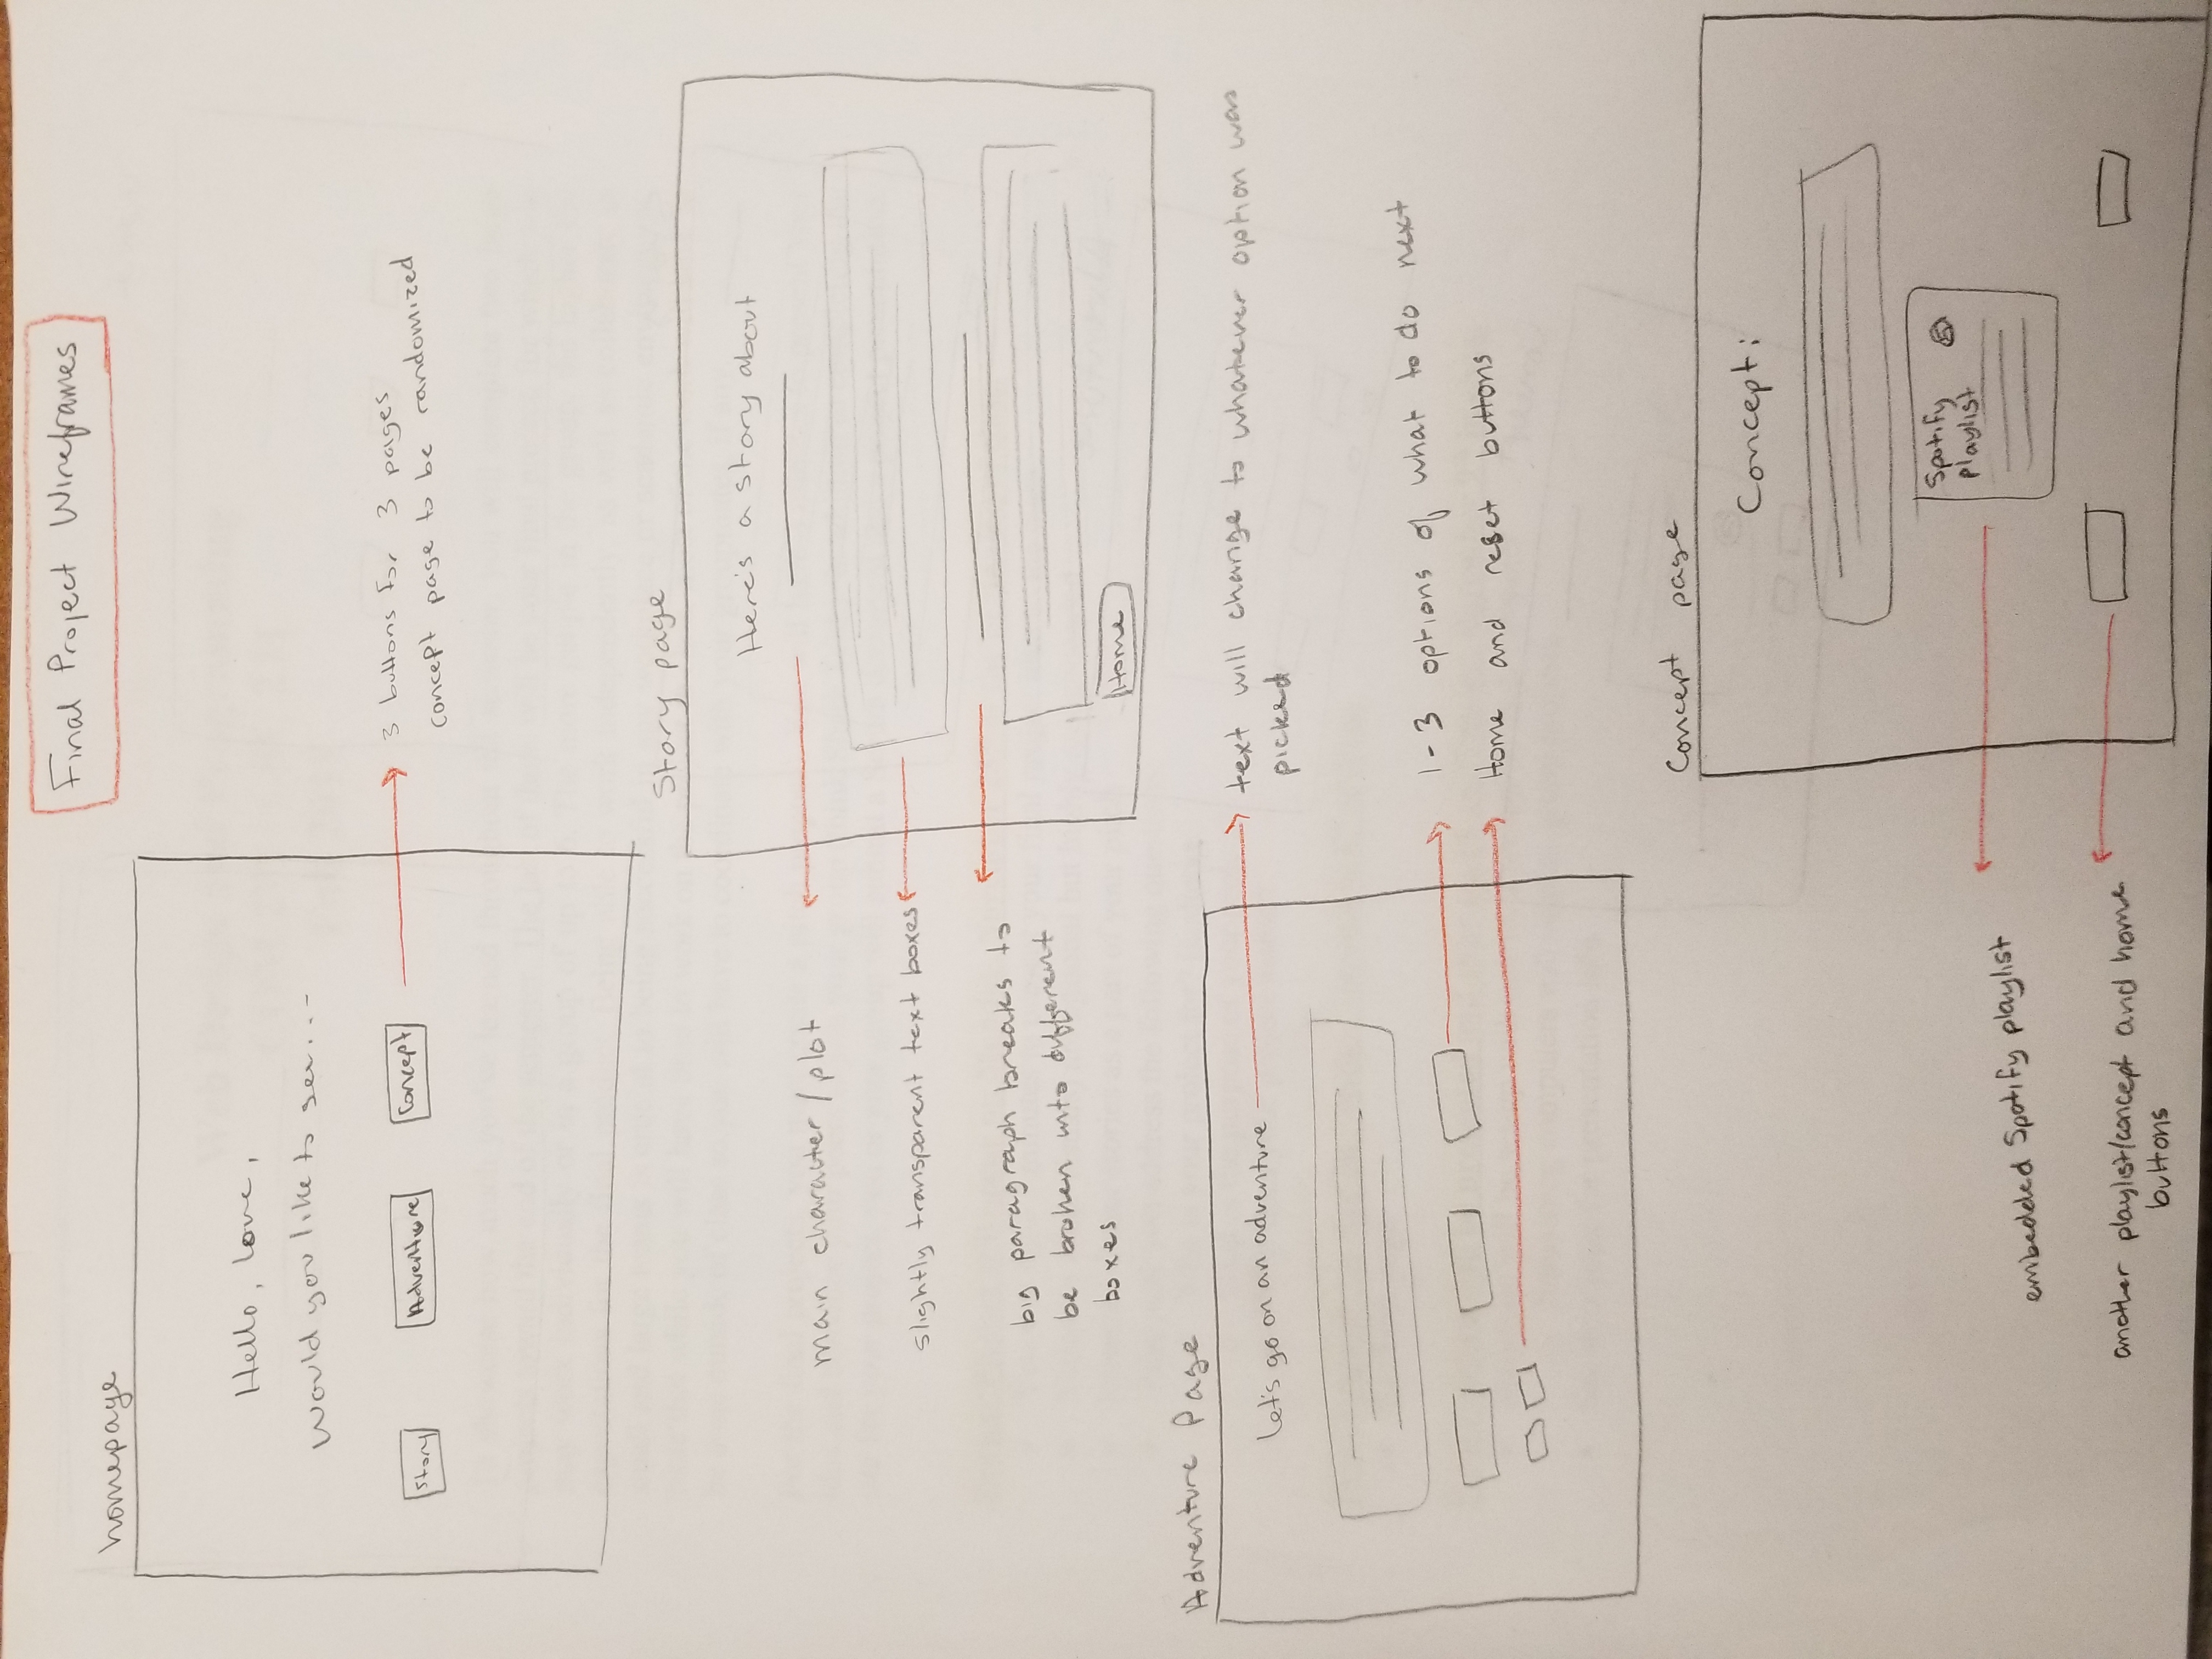 Final Project Wireframes
homepage
Hello, love,
Would you like to see...-
Story
Adventure
Concept
3 buttons for 3 pages
concept page to be randomized
Story page
Here's a story about
main character / plot
slightly transparent text boxes
big paragraph breaks to
be broken into different
boxes
Home
Adventure Page
let's go on an adventure
text will change to whatever option was
picked
1-3 options of what to do next
Home and reset buttons
Concept page
Concept:
Spotify
playlist
embedded Spotify playlist
another playlist/concept and home
buttons